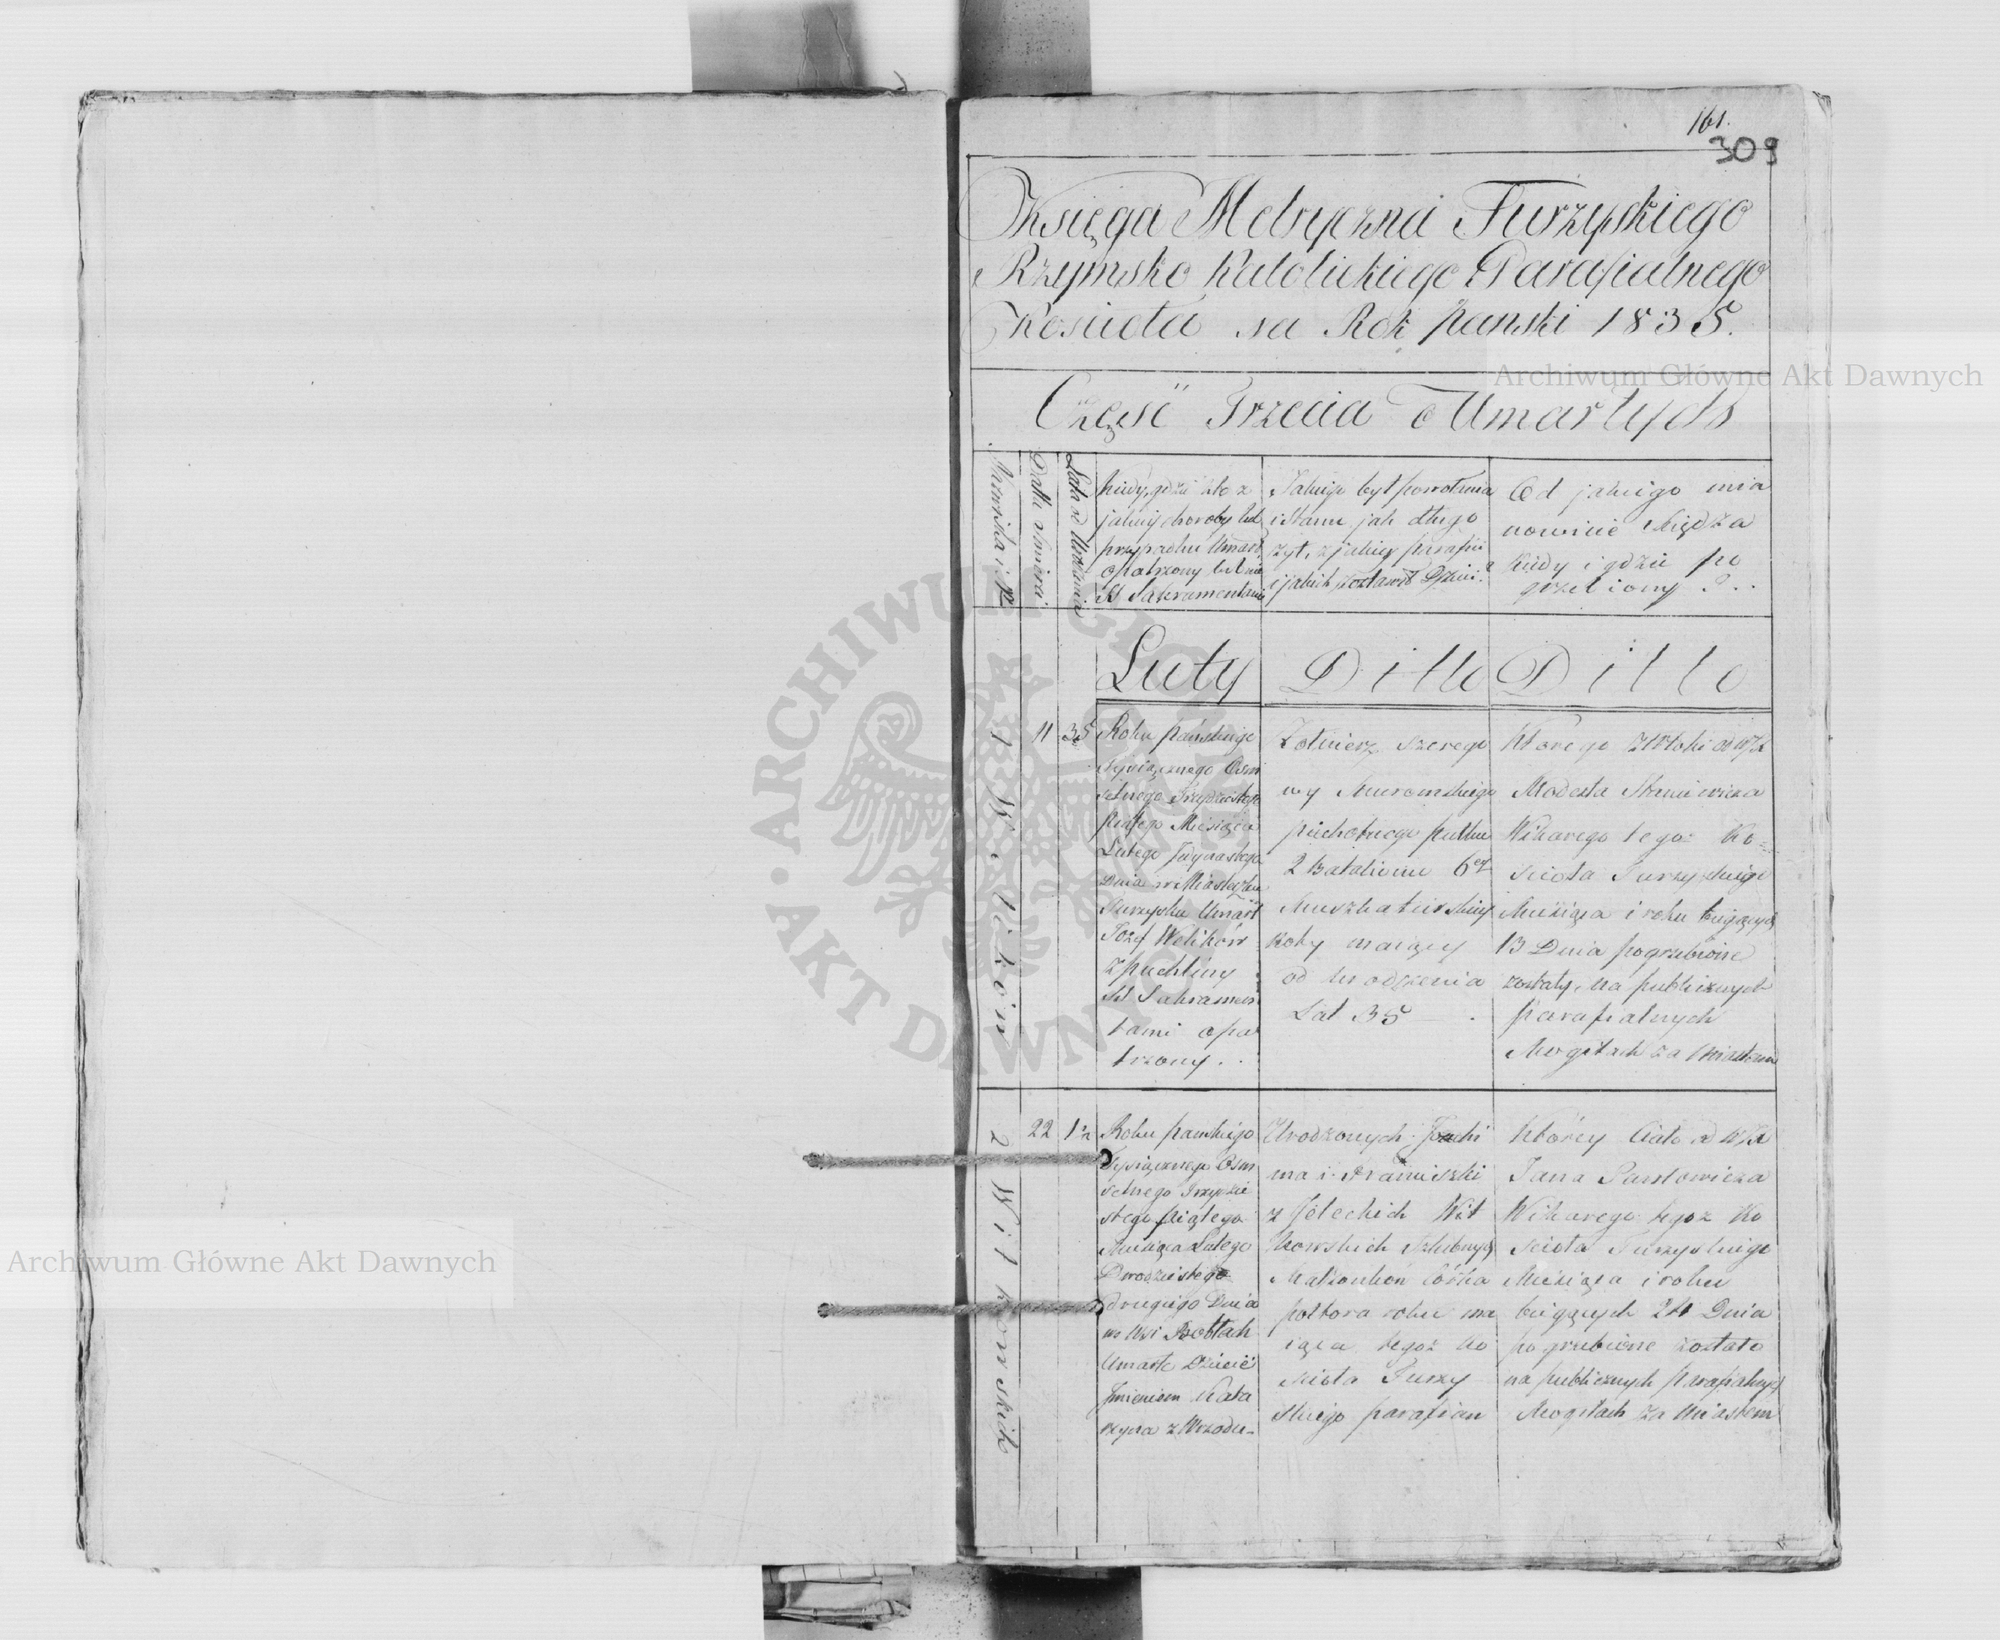 161.
309
Księga Metryczna Turzyskiego
Rzymsko Katolickiego Parafialnego
Kościoła na Rok pański 1835.
Archiwum Główne Akt Dawnych
Część Trzecia o Umarłych
Data Śmierci
Lata od Urodzenia
Kiedy, gdzie kto z
jakiej choroby lub
przypadku Umarł,
opatrzony był
SS Sakramentami
Jakiego był powołania
i Stanu, jak długo
żył, z jakiej parafii
i jakich zostawił Dzieci?
Od jakiego mia
nowicie Księdza
kiedy i gdzie po
grzebiony?..
Luty
Ditto
Ditto
1 Welików
11
35
Roku pańskiego
tysiącznego Osm
setnego Trzydziestego
piątego Miesiąca
Lutego Jedynastego
Dnia w Miasteczku
Turzysku Umarł
Jozef Welików
z puchliny
SS Sakramen
tami opa
trzony..
Żołnierz szerego
wy Muromskiego
piechotnego pułku
2 Batalionu 6ej
Muszkaterskiej
Roty maiący
od Urodzenia
Lat 35 — .
Którego zwłoki od WX
Modesta Staniewicza
Wikarego tego= Ko=
ścioła Turzyskiego
Miesiąca i roku bieżących
13 Dnia pogrzebione
zostały, na publicznych
Parafialnych
Mogiłach za Miastem
2 Witkowskich
22
1½
Roku pańskiego
tysiącznego Osm
setnego Trzydzie
stego piątego
Miesiąca Lutego
Dwódziestego
drugiego Dnia
we Wsi
Umarło Dziecie
Imieniem Kata
rzyna z Wrzodu-
Urodzonych
ma i Franciszki
z Wit
kowskich Szlubnych
Małżonków Córka
półtora roku ma
iąca tegoż Ko
ścioła Turzy
skiego parafian
Którey Ciało od WX
Jana Pawłowicza
Wikarego tegoż Ko
ścioła Turzyskiego
Miesiąca i roku
bieżących 24 Dnia
pogrzebione zostało
na publicznych parafialnych
Mogiłach za Miastem
Archiwum Główne Akt Dawnych
ARCHIWUM GŁÓWNE AKT DAWNYCH